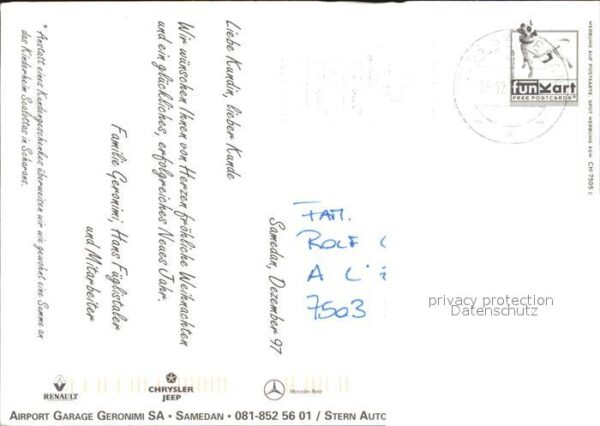 Liebe Kundin, lieber Kunde
Wir wünschen Ihnen von Herzen fröhliche Weihnachten
und ein glückliches, erfolgreiches Neues Jahr.
Familie Geronimi, Hans Füglistaler
und Mitarbeiter
Samedan, Dezember 97
* Anstatt eines Kundengeschenkes überweisen wir wie gewohnt eine Summe an
das Kinderheim Scalottas in Scharans.
funkart
FREE POSTCARDS
WERBUNG AUF POSTKARTE. SPOT WERBUNG ASW. CH-7505
FAM.
ROLF
A L'
7503
privacy protection
Datenschutz
RENAULT
CHRYSLER
JEEP
Mercedes-Benz
AIRPORT GARAGE GERONIMI SA • SAMEDAN • 081-852 56 01 / STERN AUTO